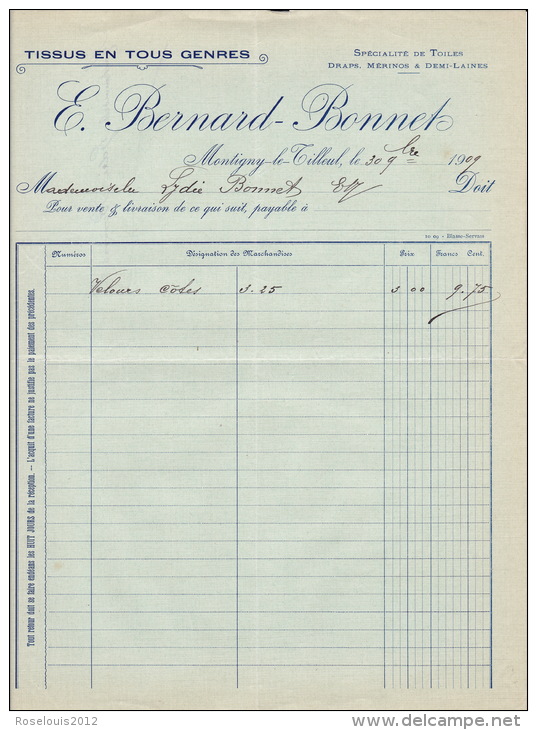 TISSUS EN TOUS GENRES
SPÉCIALITÉ DE TOILES
DRAPS, MÉRINOS & DEMI-LAINES
E. Bernard-Bonnet
Montigny-le-Tilleul, le 30 9bre 1909
Mademoiselle Lydie Bonnet E/V Doit
Pour vente & livraison de ce qui suit, payable à
10 09 - Blame-Servais
Numéros Désignation des Marchandises Prix Francs Cent.
Velours côtes 3.25 3 00 9.75
Tout retour doit se faire endéans les HUIT JOURS de la réception. — L'acquit d'une facture ne justifie pas le paiement des précédentes.
Roselouis2012
delcampe.net